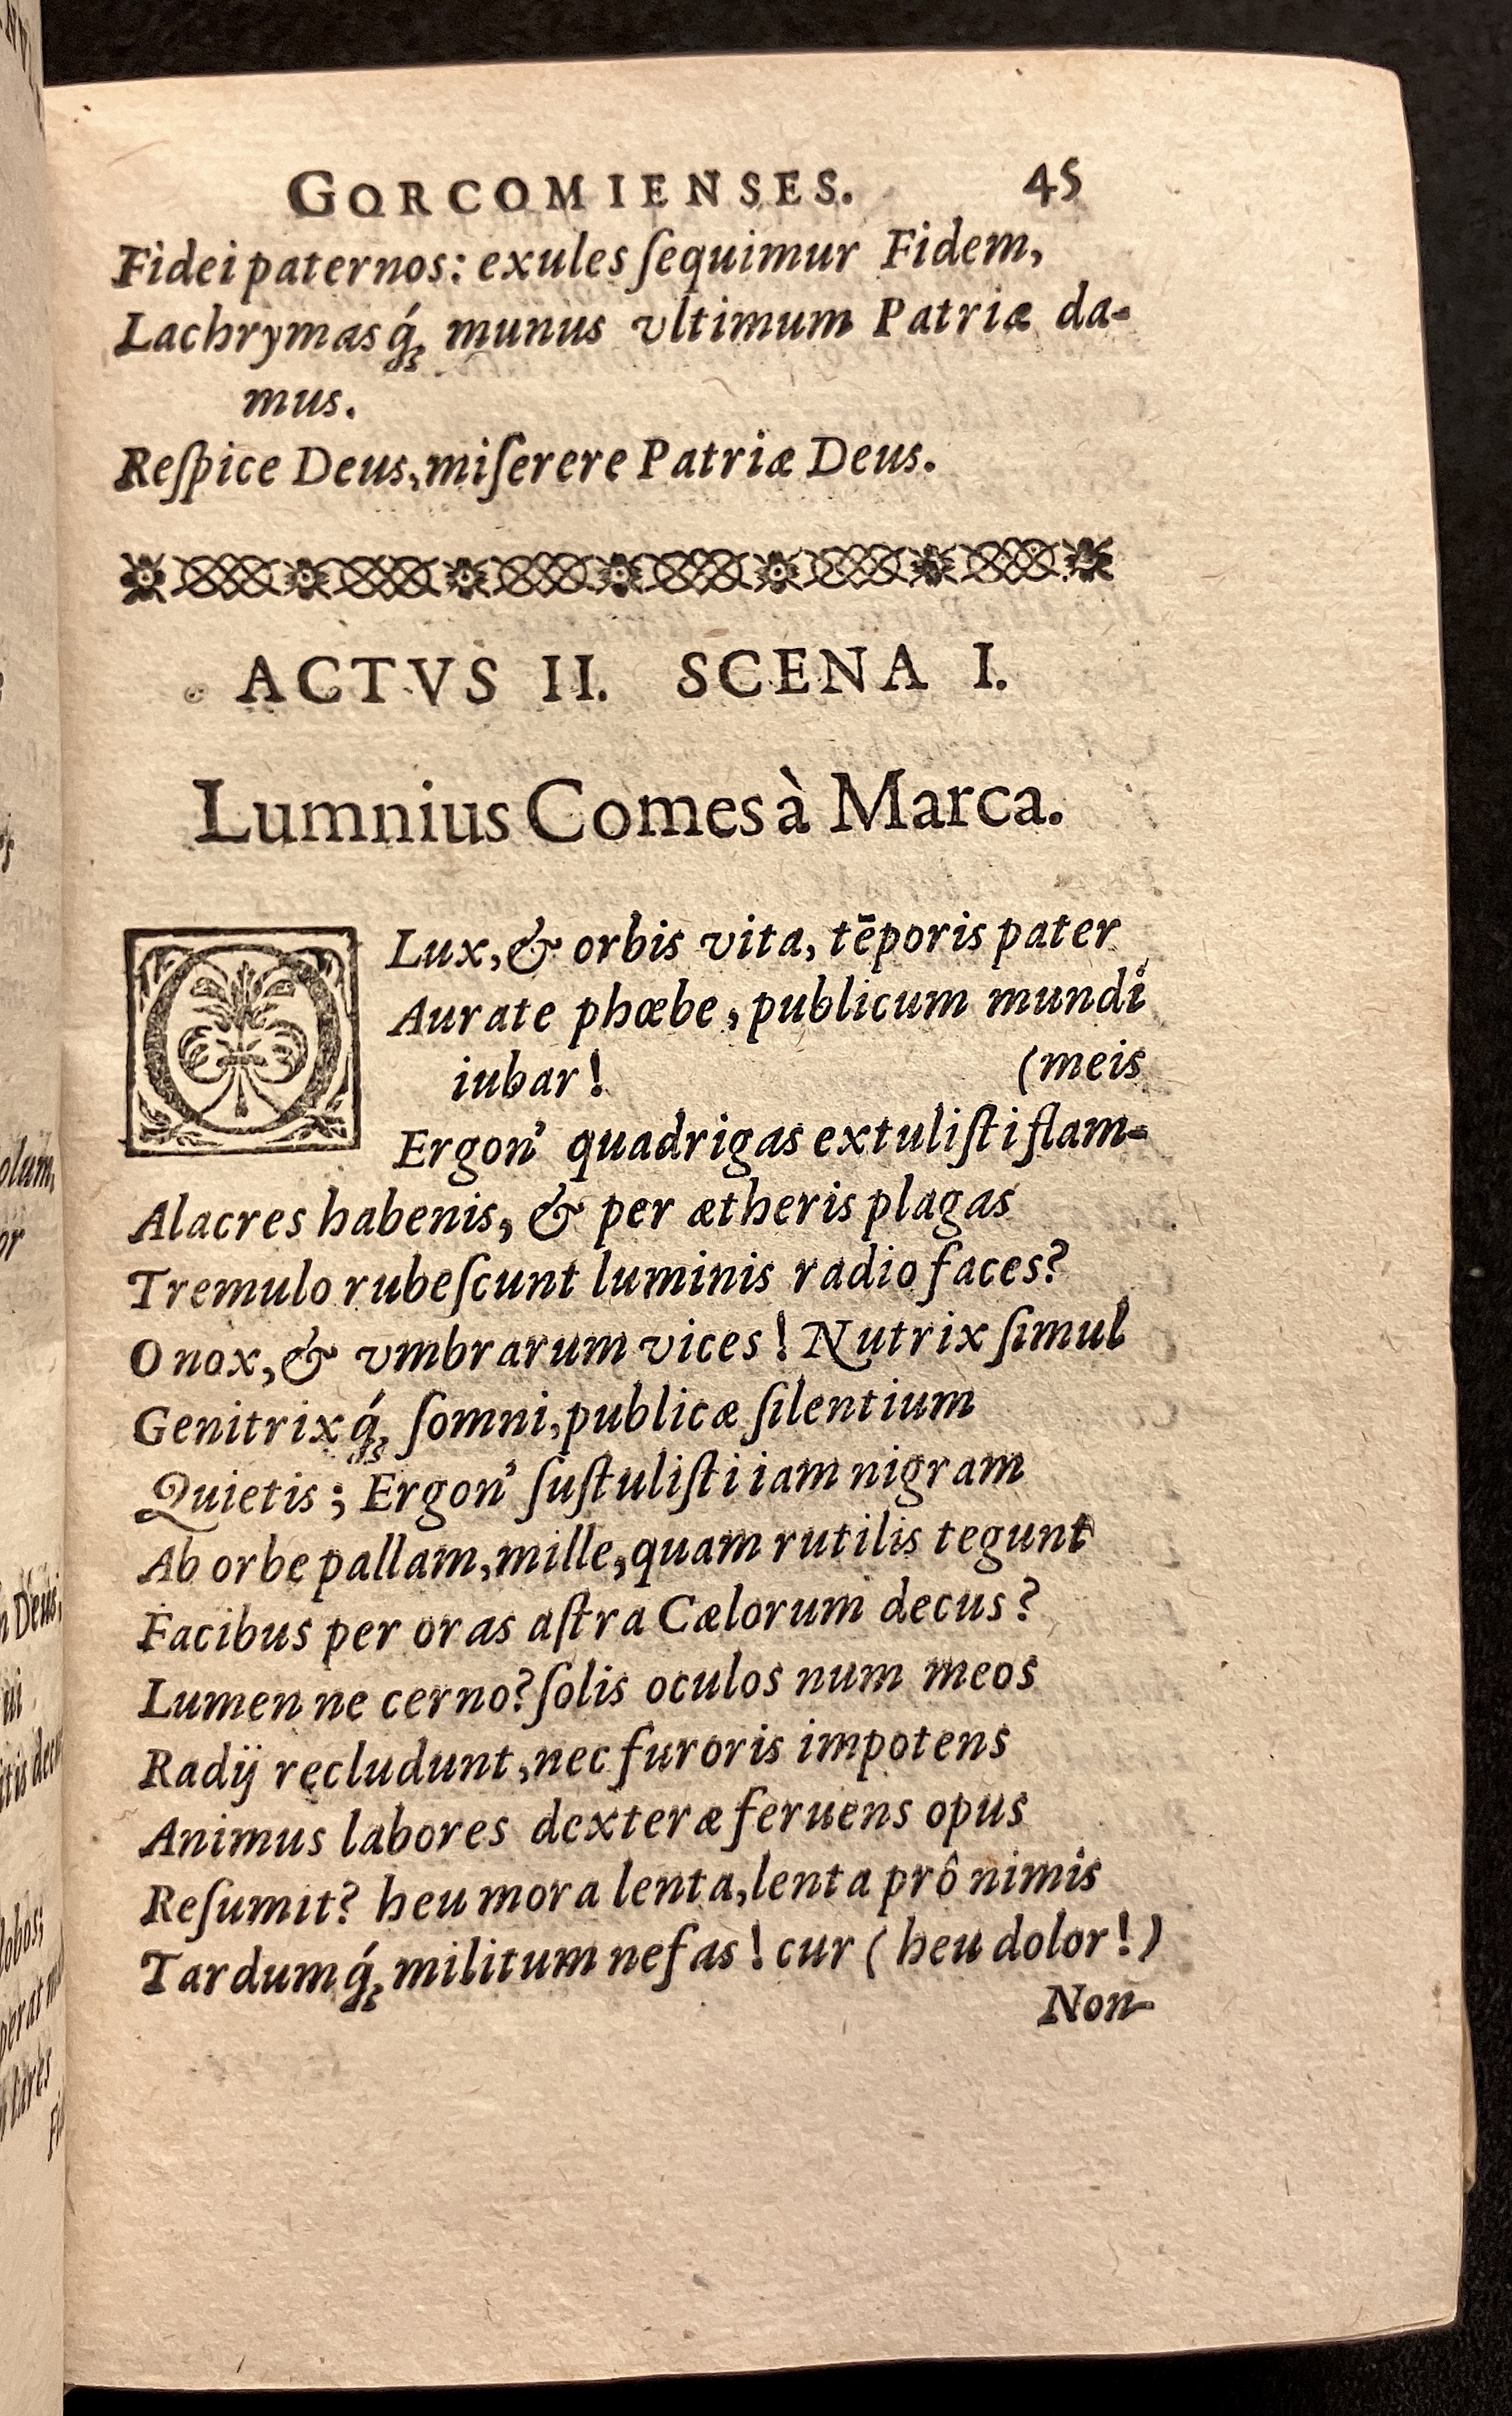 GORCOMIENSES. 45
Fidei paternos: exules ſequimur Fidem,
Lachrymasq́; munus vltimum Patriæ da-
mus.
Reſpice Deus, miſerere Patriæ Deus.
ACTVS II. SCENA I.
Lumnius Comes à Marca.
O Lux, & orbis vita, tēporis pater
Aurate phœbe, publicum mundi
iubar! (meis
Ergon' quadrigas extuliſti flam-
Alacres habenis, & per ætheris plagas
Tremulo rubeſcunt luminis radio faces?
O nox, & vmbrarum vices! Nutrix ſimul
Genitrixq́; ſomni, publicæ ſilentium
Quietis; Ergon' ſuſtuliſti iam nigram
Ab orbe pallam, mille, quam rutilis tegunt
Facibus per oras aſtra Cælorum decus?
Lumen ne cerno? ſolis oculos num meos
Radij recludunt, nec furoris impotens
Animus labores dexteræ feruens opus
Reſumit? heu mora lenta, lenta prô nimis
Tardumq́; militum nefas! cur (heu dolor!)
Non-
olum,
or
Deus,
ui
lobos;
lares